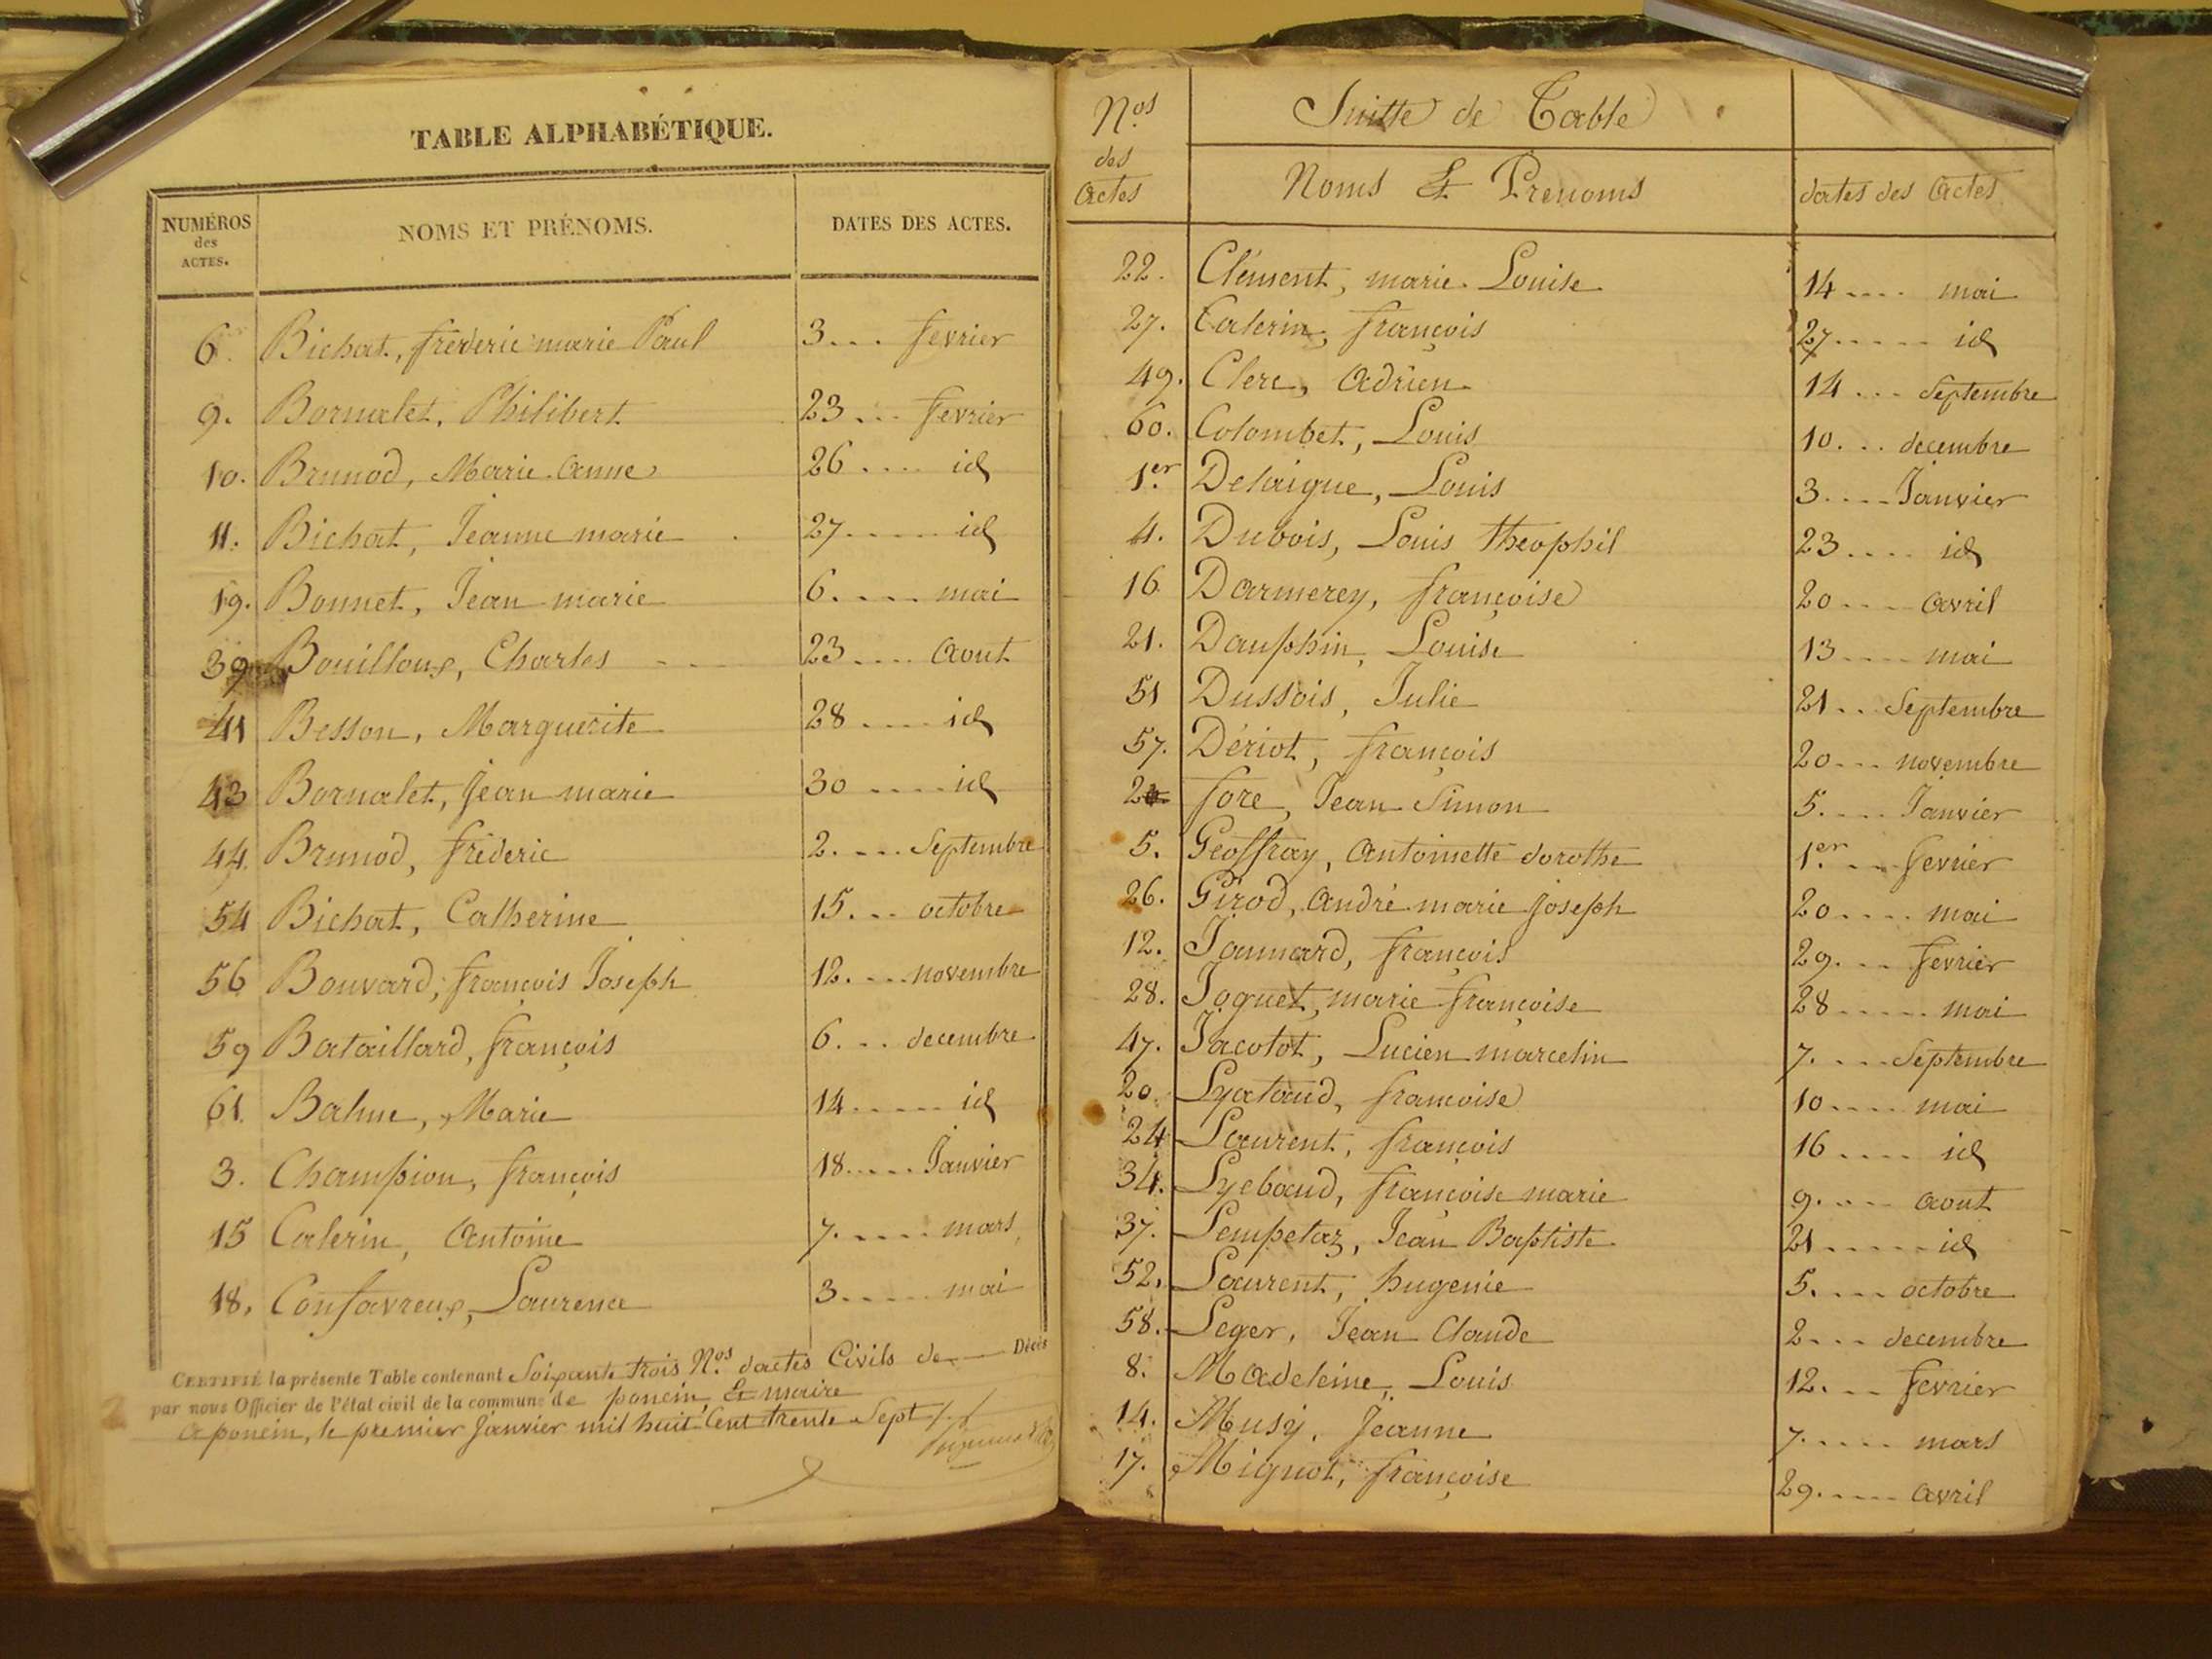 TABLE ALPHABÉTIQUE.
NUMÉROS des ACTES. NOMS ET PRÉNOMS. DATES DES ACTES.
6. Bichat, frederic marie Paul 3... fevrier
9. Bornalet, Philibert 23... fevrier
10. Brunod, Marie Anne 26.... id
11. Bichat, Jeanne marie 27..... id
19. Bonnet, Jean marie 6..... mai
39 Bouilloux, Charles 23.... Aout
41 Besson, Marguerite 28.... id
43 Bornalet, Jean marie 30..... id
44. Brunod, fréderic 2.... Septembre
54 Bichat, Catherine 15... octobre
56 Bouvard, françois Joseph 12.... novembre
59 Bataillard, françois 6... decembre
61. Balme, Marie 14..... id
3. Champion, françois 18..... Janvier
15 Calerin, Antoine 7..... mars
18. Confavreux, Laurence 3..... mai
CERTIFIÉ la présente Table contenant Soixante trois Nos. d'actes Civils de Décès
par nous Officier de l'état civil de la commune de poncin, Et maire
A poncin, le premier Janvier mil huit Cent trente Sept
Nos. des Actes
Suitte de Table
Noms Et Prenoms dates des Actes
22. Clément, marie Louise 14.... mai
27. Calerin, françois 27..... id
49. Clerc, Adrien 14... Septembre
60. Colombet, Louis 10... decembre
1er. Delaigue, Louis 3.... Janvier
4. Dubois, Louis theophil 23.... id
16 Darmerey, françoise 20.... Avril
21. Dauphin, Louise 13.... mai
51 Dussois, Julie 21.. Septembre
57. Dériot, françois 20... novembre
2 fore, Jean Simon 5.... Janvier
5. Geoffray, Antoinette dorothe 1er... fevrier
26. Girod, André marie Joseph 20.... mai
12. Jannard, françois 29... fevrier
28. Joguet, marie françoise 28..... mai
47. Jacotot, Lucien marcelin 7.... Septembre
20. Lyataud, francoise 10.... mai
24 Laurent, françois 16.... id
34. Lyebaud, françoise marie 9.... aout
37. Lempetaz, Jean Baptiste 21..... id
52. Laurent, hugenie 5.... octobre
58. Leger, Jean Claude 2... decembre
8. Madeleine, Louis 12... fevrier
14. Musy, Jeanne 7..... mars
17. Mignot, françoise 29..... avril